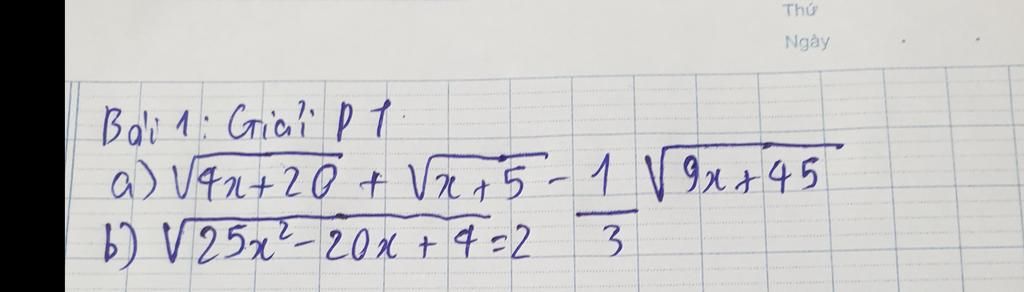 Thứ
Ngày
Bài 1: Giải PT
a) √(4x+20) + √(x+5) - 1/3 √(9x+45)
b) √(25x² - 20x + 4) = 2